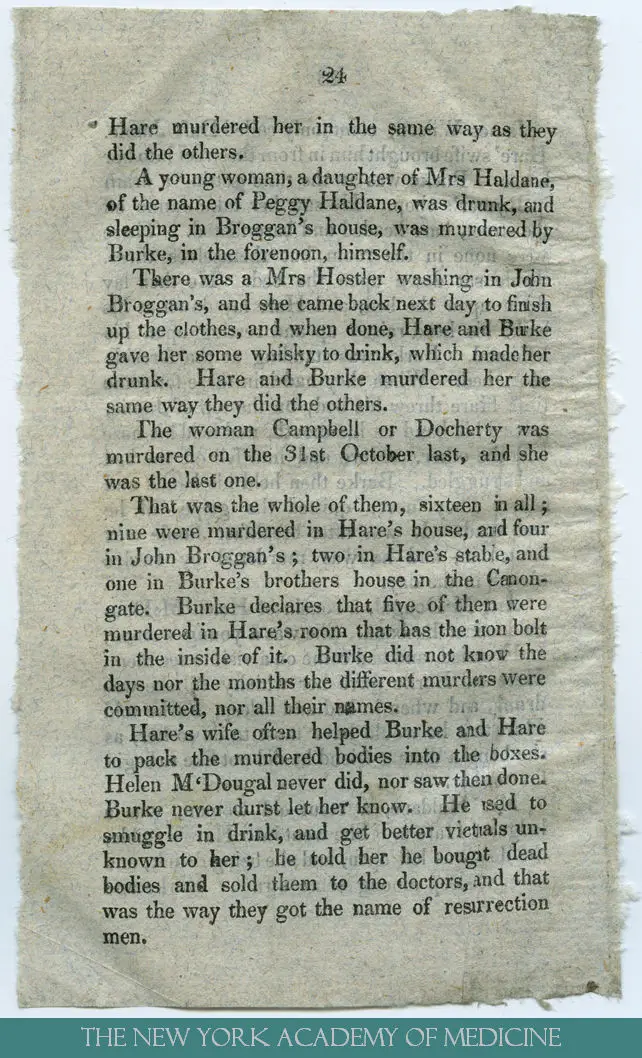 24
Hare murdered her in the same way as they
did the others.
A young woman, a daughter of Mrs Haldane,
of the name of Peggy Haldane, was drunk, and
sleeping in Broggan's house, was murdered by
Burke, in the forenoon, himself.
There was a Mrs Hostler washing in John
Broggan's, and she came back next day to finish
up the clothes, and when done, Hare and Burke
gave her some whisky to drink, which made her
drunk. Hare and Burke murdered her the
same way they did the others.
The woman Campbell or Docherty was
murdered on the 31st October last, and she
was the last one.
That was the whole of them, sixteen in all;
nine were murdered in Hare's house, and four
in John Broggan's; two in Hare's stable, and
one in Burke's brothers house in the Canon-
gate. Burke declares that five of them were
murdered in Hare's room that has the iron bolt
in the inside of it. Burke did not know the
days nor the months the different murders were
committed, nor all their names.
Hare's wife often helped Burke and Hare
to pack the murdered bodies into the boxes.
Helen M'Dougal never did, nor saw then done.
Burke never durst let her know. He used to
smuggle in drink, and get better victuals un-
known to her; he told her he bought dead
bodies and sold them to the doctors, and that
was the way they got the name of resurrection
men.
THE NEW YORK ACADEMY OF MEDICINE